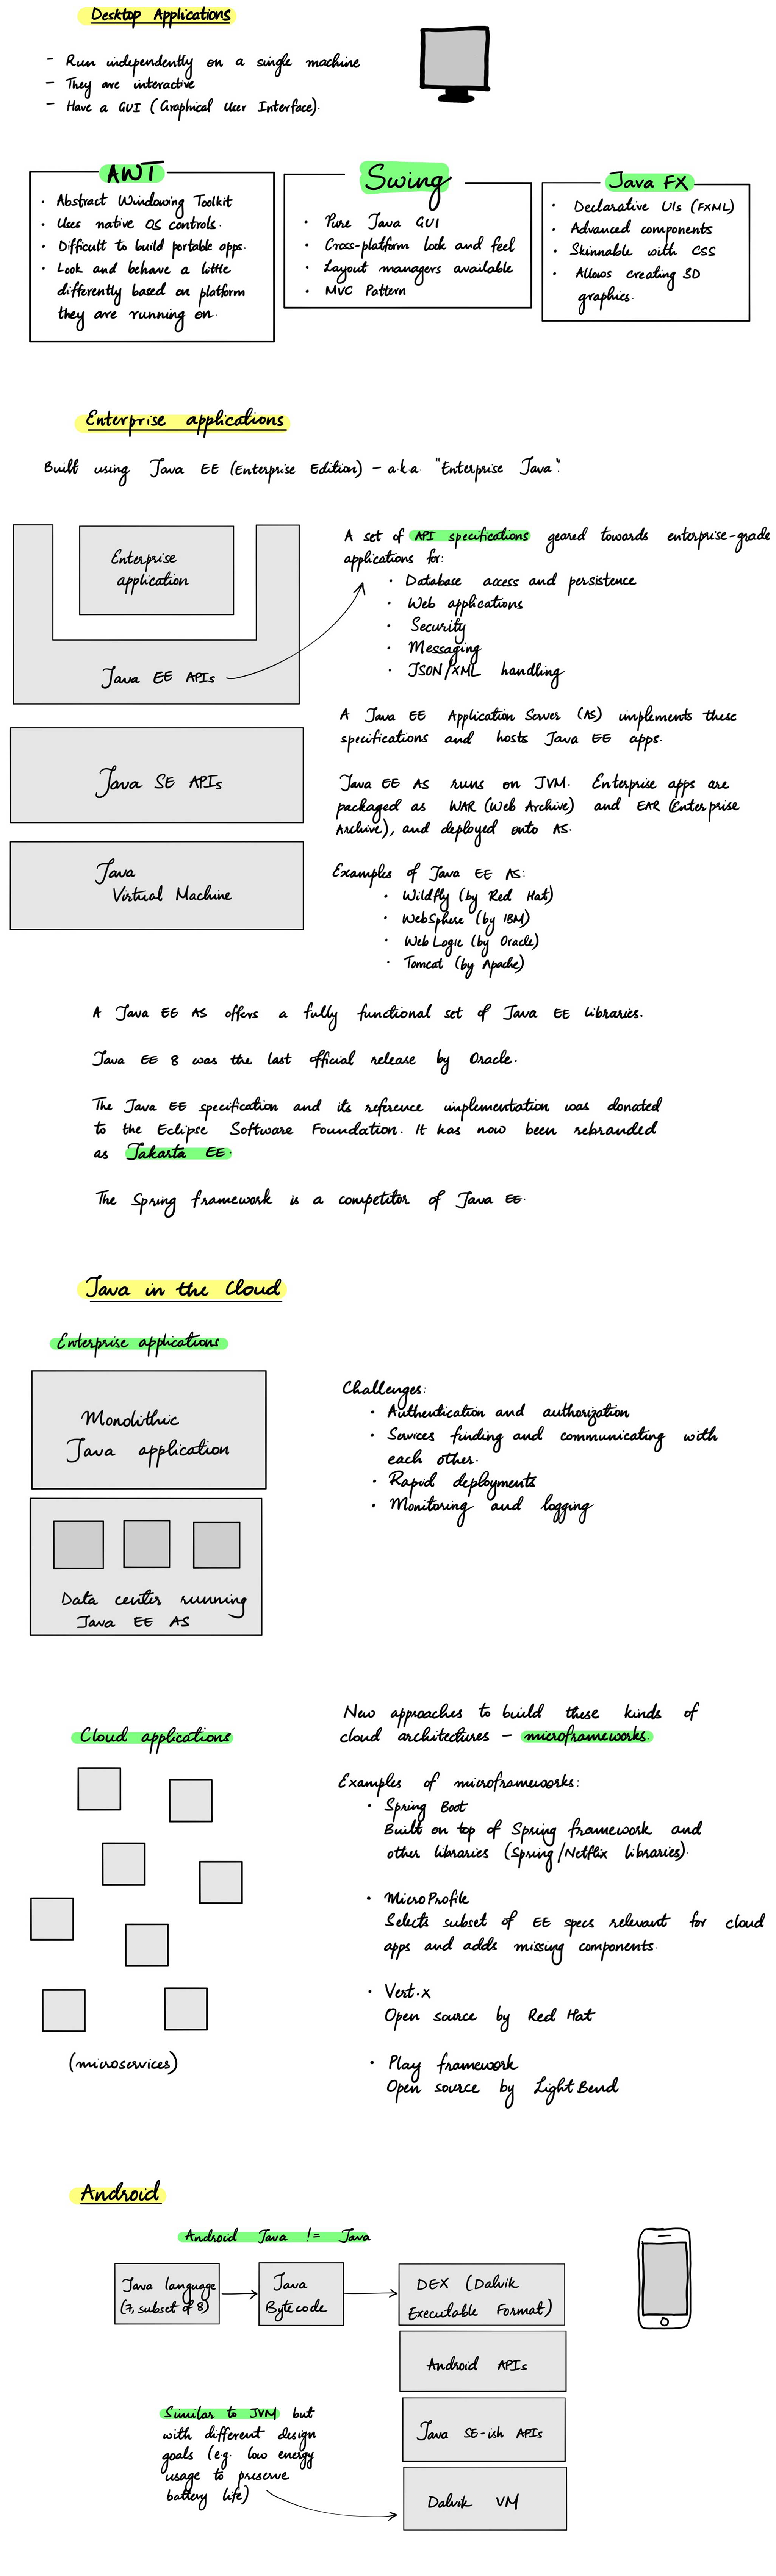 Desktop Applications
- Run independently on a single machine
- They are interactive
- Have a GUI (Graphical User Interface).
AWT
· Abstract Windowing Toolkit
· Uses native OS controls.
· Difficult to build portable apps.
· Look and behave a little
differently based on platform
they are running on.
Swing
· Pure Java GUI
· Cross-platform look and feel
· Layout managers available
· MVC Pattern
Java FX
· Declarative UIs (FXML)
· Advanced components
· Skinnable with CSS
· Allows creating 3D
graphics.
Enterprise applications
Built using Java EE (Enterprise Edition) - a.k.a. "Enterprise Java".
Enterprise
application
Java EE APIs
Java SE APIs
Java
Virtual Machine
A set of API specifications geared towards enterprise-grade
applications for:
· Database access and persistence
· Web applications
· Security
· Messaging
· JSON/XML handling
A Java EE Application Server (AS) implements these
specifications and hosts Java EE apps.
Java EE AS runs on JVM. Enterprise apps are
packaged as WAR (Web Archive) and EAR (Enterprise
Archive), and deployed onto AS.
Examples of Java EE AS:
· Wildfly (by Red Hat)
· WebSphere (by IBM)
· Web Logic (by Oracle)
· Tomcat (by Apache)
A Java EE AS offers a fully functional set of Java EE libraries.
Java EE 8 was the last official release by Oracle.
The Java EE specification and its reference implementation was donated
to the Eclipse Software Foundation. It has now been rebranded
as Jakarta EE.
The Spring framework is a competitor of Java EE.
Java in the Cloud
Enterprise applications
Monolithic
Java application
Data center running
Java EE AS
Challenges:
· Authentication and authorization
· Services finding and communicating with
each other.
· Rapid deployments
· Monitoring and logging
Cloud applications
(microservices)
New approaches to build these kinds of
cloud architectures - microframeworks.
Examples of microframeworks:
· Spring Boot
Built on top of Spring framework and
other libraries (Spring/Netflix libraries).
· MicroProfile
Selects subset of EE specs relevant for cloud
apps and adds missing components.
· Vert.x
Open source by Red Hat
· Play framework
Open source by LightBend
Android
Android Java != Java
Java language
(7, subset of 8)
Java
Bytecode
DEX (Dalvik
Executable Format)
Android APIs
Java SE-ish APIs
Dalvik VM
Similar to JVM but
with different design
goals (e.g. low energy
usage to preserve
battery life)